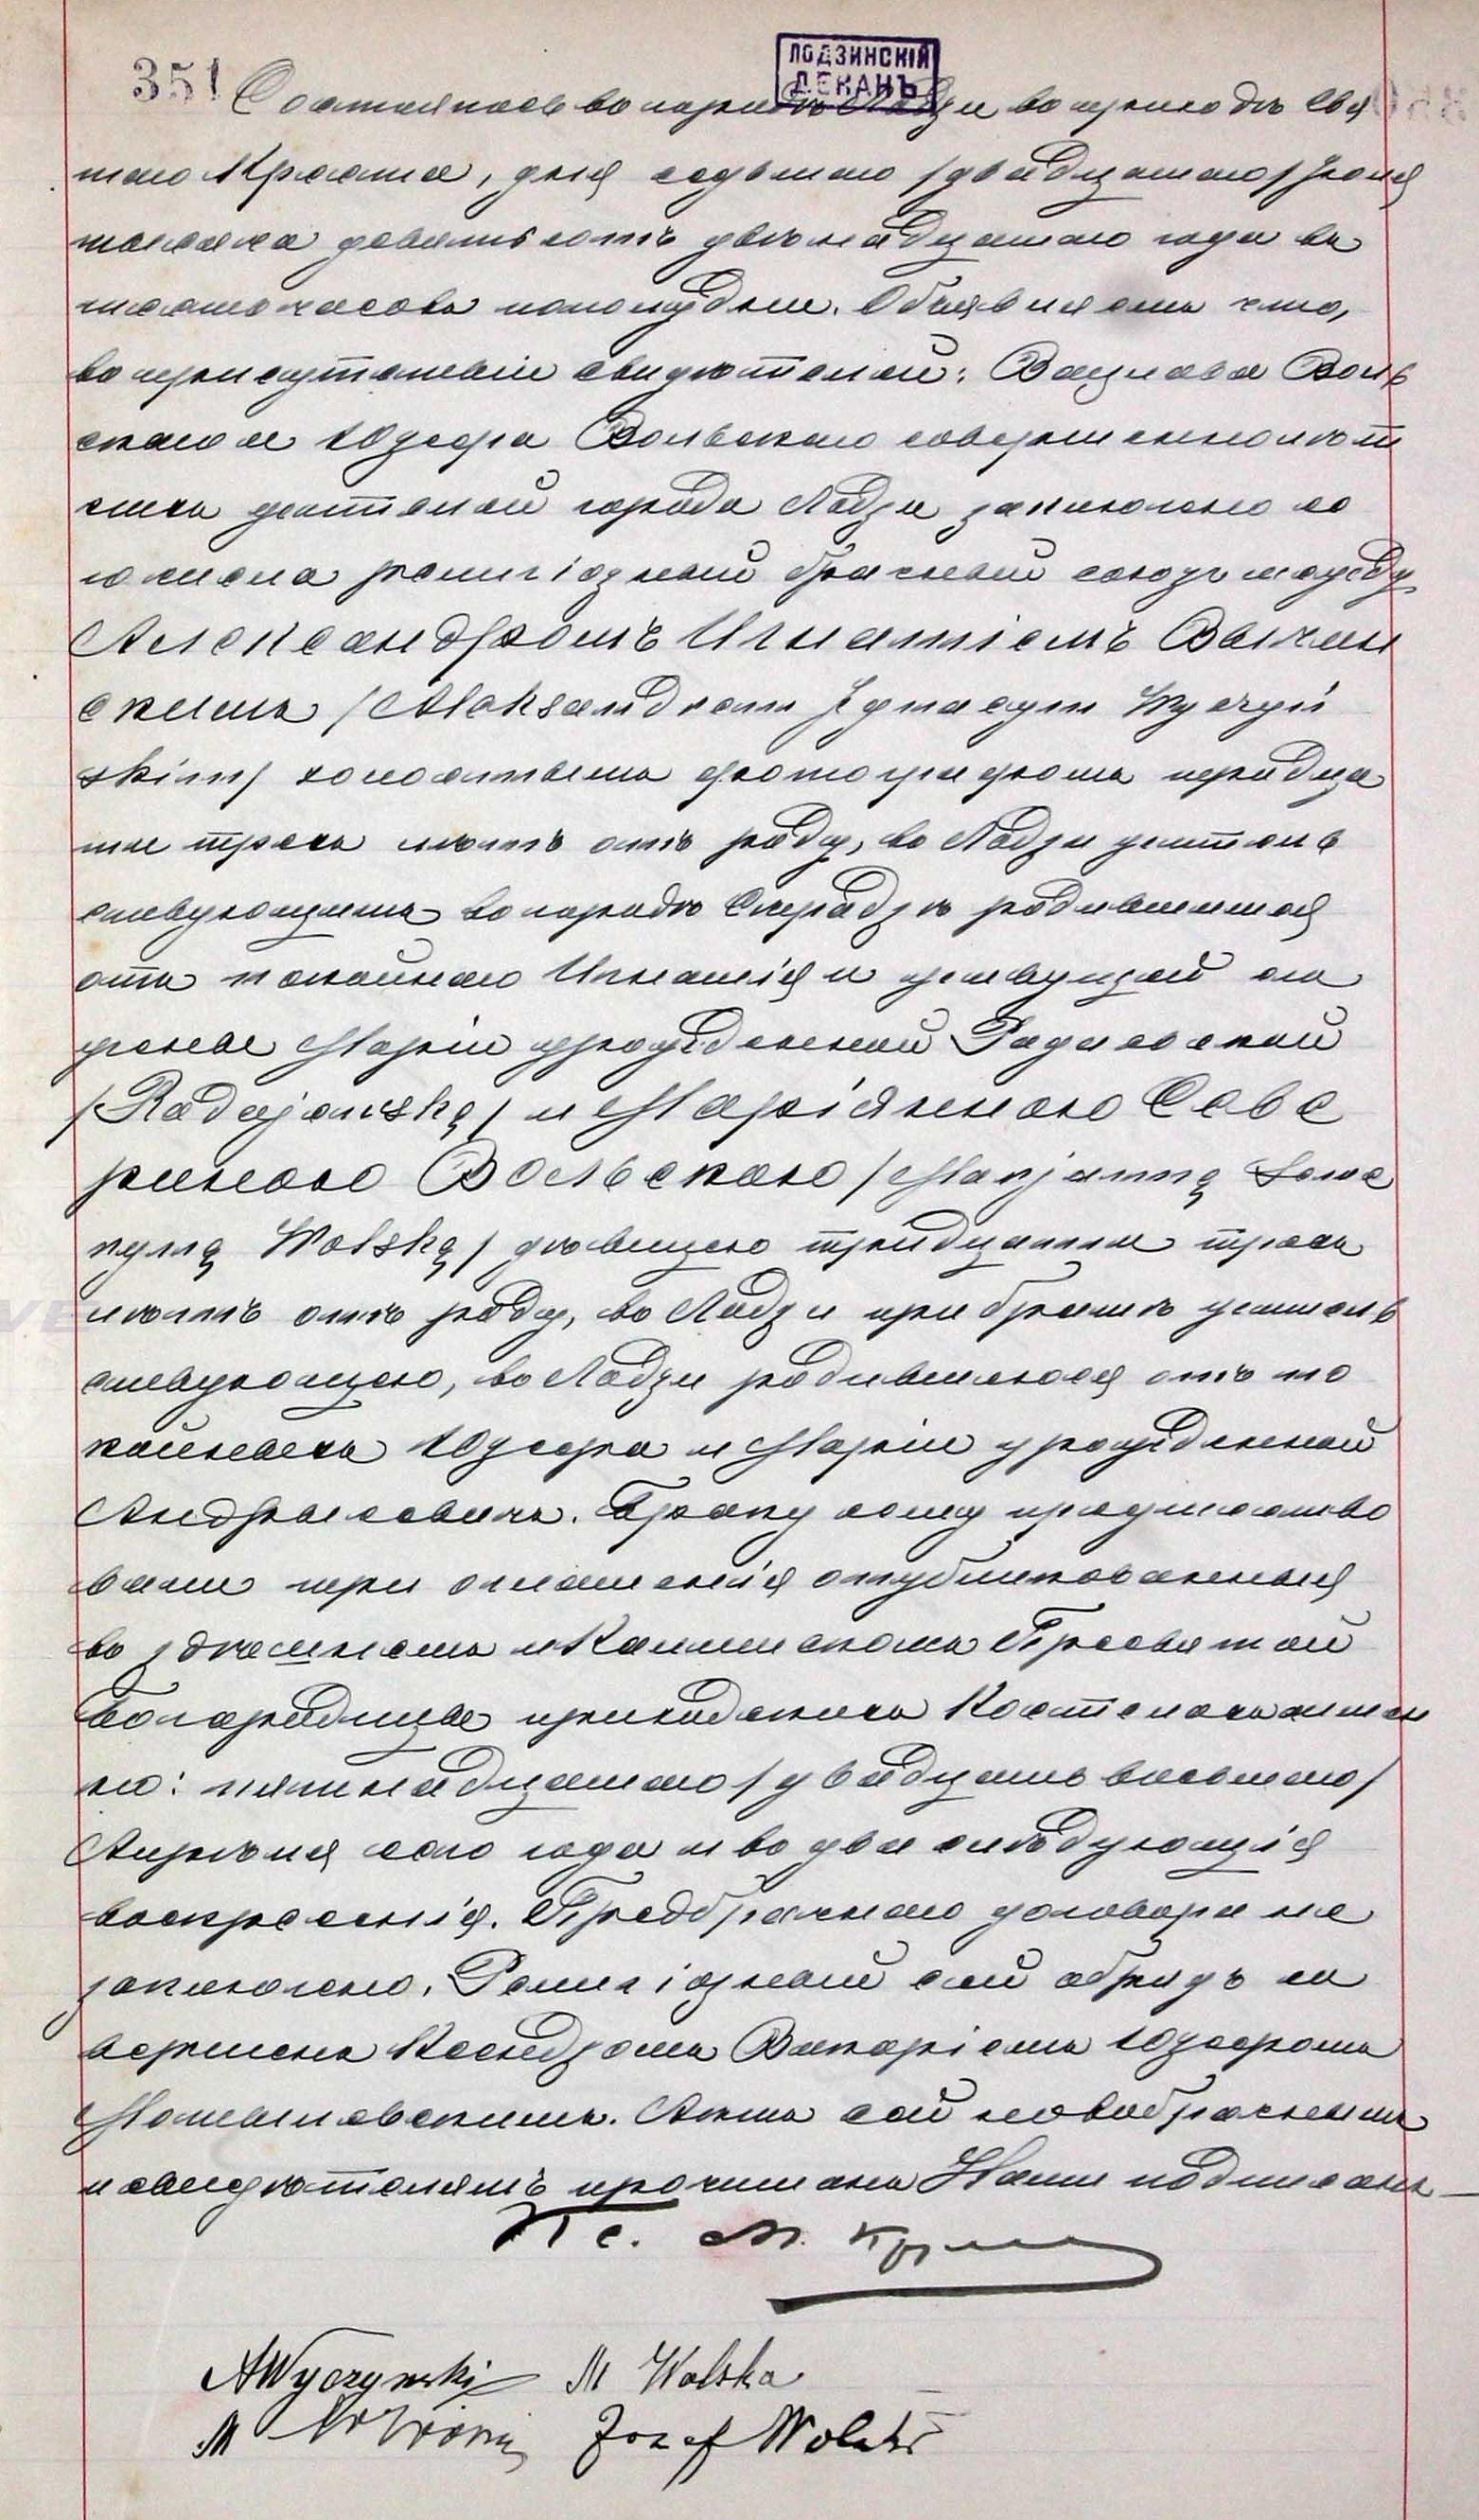 ЛОДЗИНСКІЙ
ДЕКАНЪ
351 Состоялось во городѣ Лодзи во приходѣ Свя
таго Креста, дня седьмаго /двадцатаго/ Іюня
тысяча девятьсотъ двѣнадцатаго года въ
шесть часовъ пополудни. Объявляемъ что,
во присутствіи свидѣтелей: Вацлава Воль
скаго и Юзефа Вольскаго совершеннолѣт
нихъ жителей города Лодзи заключено се
го числа религіозный брачный союзъ между
Александромъ Игнатіемъ Вычин
скимъ /Aleksandrem Ignacym Wyczyń
skim/ холостымъ фотографомъ тридца
ти трехъ лѣтъ отъ роду, во Лодзи житель
ствующимъ во городѣ Серадзѣ родившимся
отъ покойнаго Игнатія и живущей его
жены Маріи урожденной Радаевской
/Radajewską/ и Маріянною Севе
риною Вольскою /Marjanną Sewe
ryną Wolską/ дѣвицею тридцати трехъ
лѣтъ отъ роду, во Лодзи при братѣ житель
ствующею, во Лодзи родившеюся отъ по
койныхъ Юзефа и Маріи урожденной
Андрысевичъ. Браку сему предшество
вали три оглашенія опубликованныя
во здѣшнемъ и Калишскомъ Пресвятой
Богородицы приходскихъ Костелахъ имен
но: пятнадцатаго /двадцать восьмаго/
Апрѣля сего года и во два слѣдующія
воскресенія. Предбрачнаго договора не
заключено. Религіозный сей обрядъ со
вершенъ Ксендзомъ Викаріемъ Юзефомъ
Актъ сей новобрачнымъ
и свидѣтелямъ прочитанъ Нами подписанъ
Кс. М.
AWyczyński M Wolska
Józef Wolski